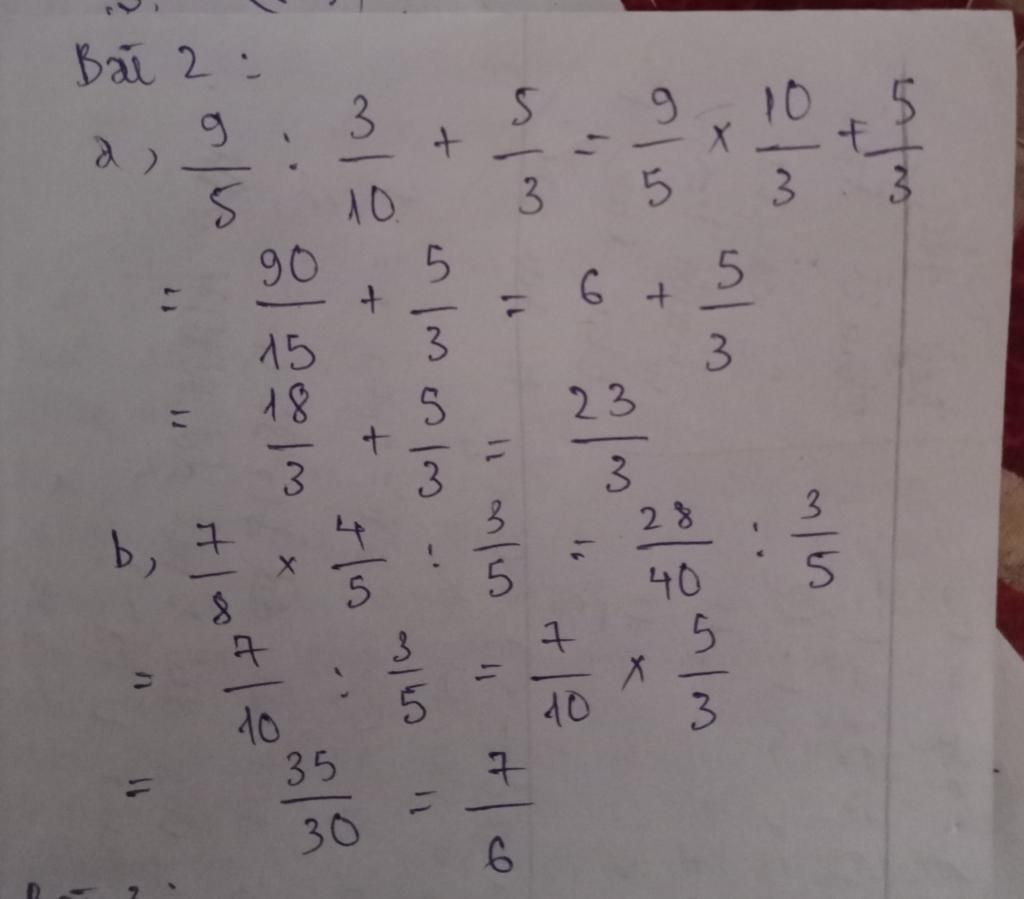 Bài 2 :
a, 9/5 : 3/10 + 5/3 = 9/5 × 10/3 + 5/3
= 90/15 + 5/3 = 6 + 5/3
= 18/3 + 5/3 = 23/3
b, 7/8 × 4/5 : 3/5 = 28/40 : 3/5
= 7/10 : 3/5 = 7/10 × 5/3
= 35/30 = 7/6